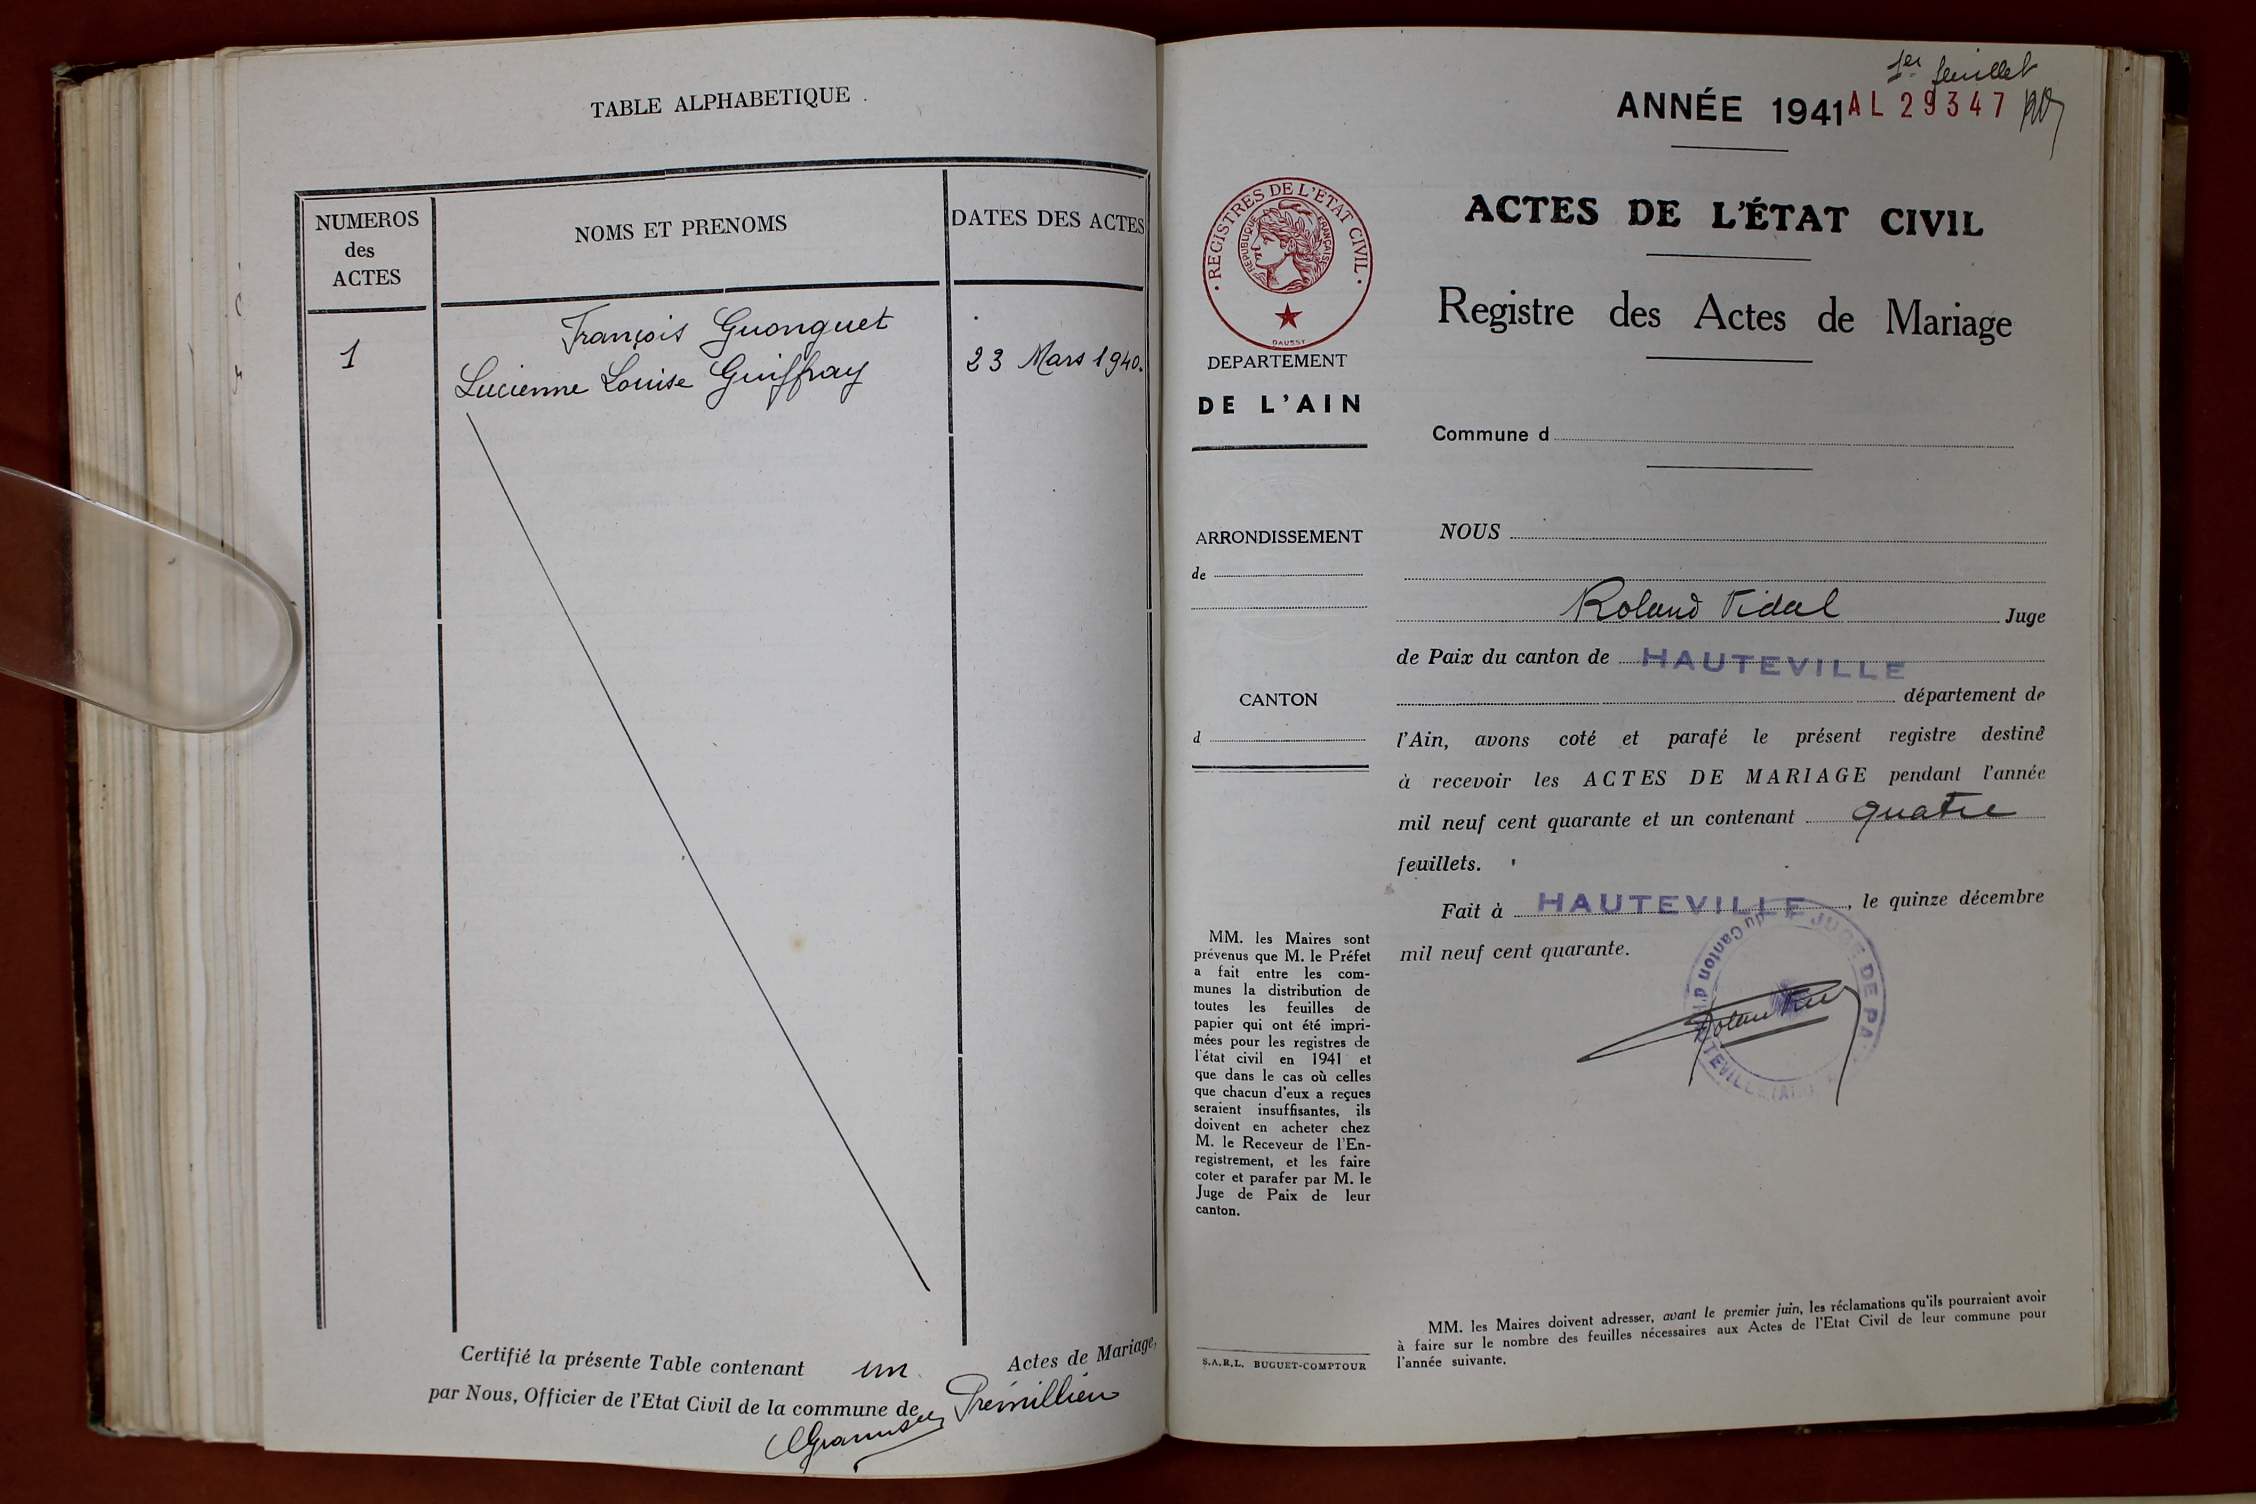 TABLE ALPHABETIQUE
NUMEROS
des
ACTES
NOMS ET PRENOMS
DATES DES ACTES
1
François Guonguet
Lucienne Louise Guiffray
23 Mars 1940.
Certifié la présente Table contenant un Actes de Mariage,
par Nous, Officier de l'Etat Civil de la commune de Prémillieu
1er feuillet
ANNÉE 1941 AL 29347
ACTES DE L'ÉTAT CIVIL
Registre des Actes de Mariage
Commune d
REGISTRES DE L'ETAT CIVIL
REPUBLIQUE FRANÇAISE
DAUSSY
DEPARTEMENT
DE L'AIN
ARRONDISSEMENT
de
CANTON
d
MM. les Maires sont
prévenus que M. le Préfet
a fait entre les com-
munes la distribution de
toutes les feuilles de
papier qui ont été impri-
mées pour les registres de
l'état civil en 1941 et
que dans le cas où celles
que chacun d'eux a reçues
seraient insuffisantes, ils
doivent en acheter chez
M. le Receveur de l'En-
registrement, et les faire
coter et parafer par M. le
Juge de Paix de leur
canton.
S.A.R.L. BUGUET-COMPTOUR
NOUS
Roland Vidal Juge
de Paix du canton de HAUTEVILLE
département de
l'Ain, avons coté et parafé le présent registre destiné
à recevoir les ACTES DE MARIAGE pendant l'année
mil neuf cent quarante et un contenant quatre
feuillets.
Fait à HAUTEVILLE, le quinze décembre
mil neuf cent quarante.
JUGE DE PA
du Canton d'
TEVILLE
MM. les Maires doivent adresser, avant le premier juin, les réclamations qu'ils pourraient avoir
à faire sur le nombre des feuilles nécessaires aux Actes de l'Etat Civil de leur commune pour
l'année suivante.